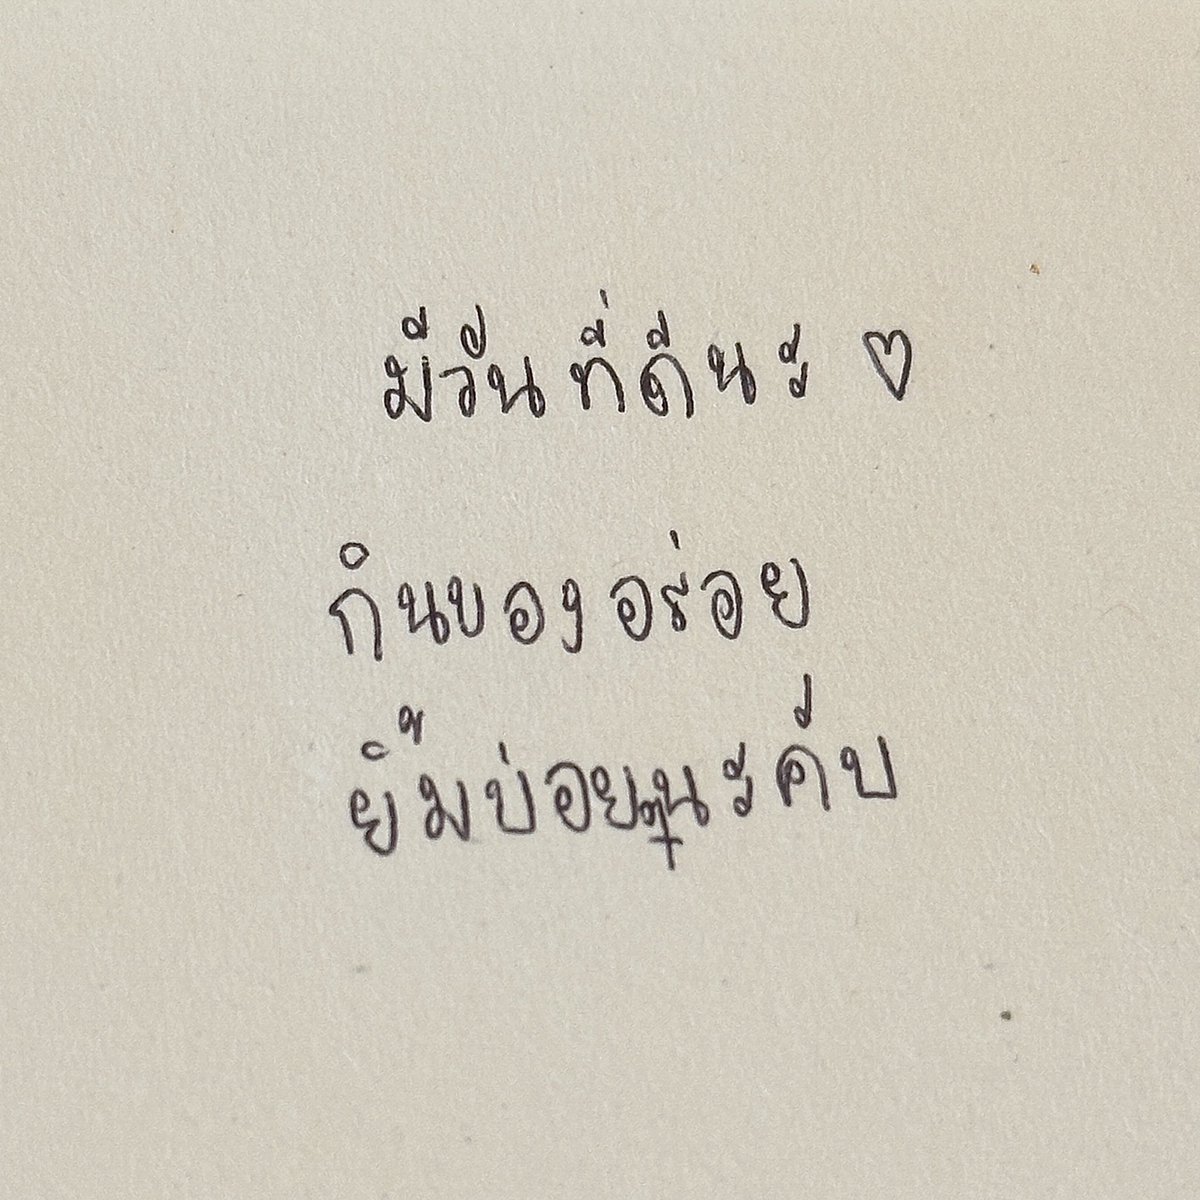 มีวันที่ดีนะ ♡
กินของอร่อย
ยิ้มบ่อยๆนะคั้บ